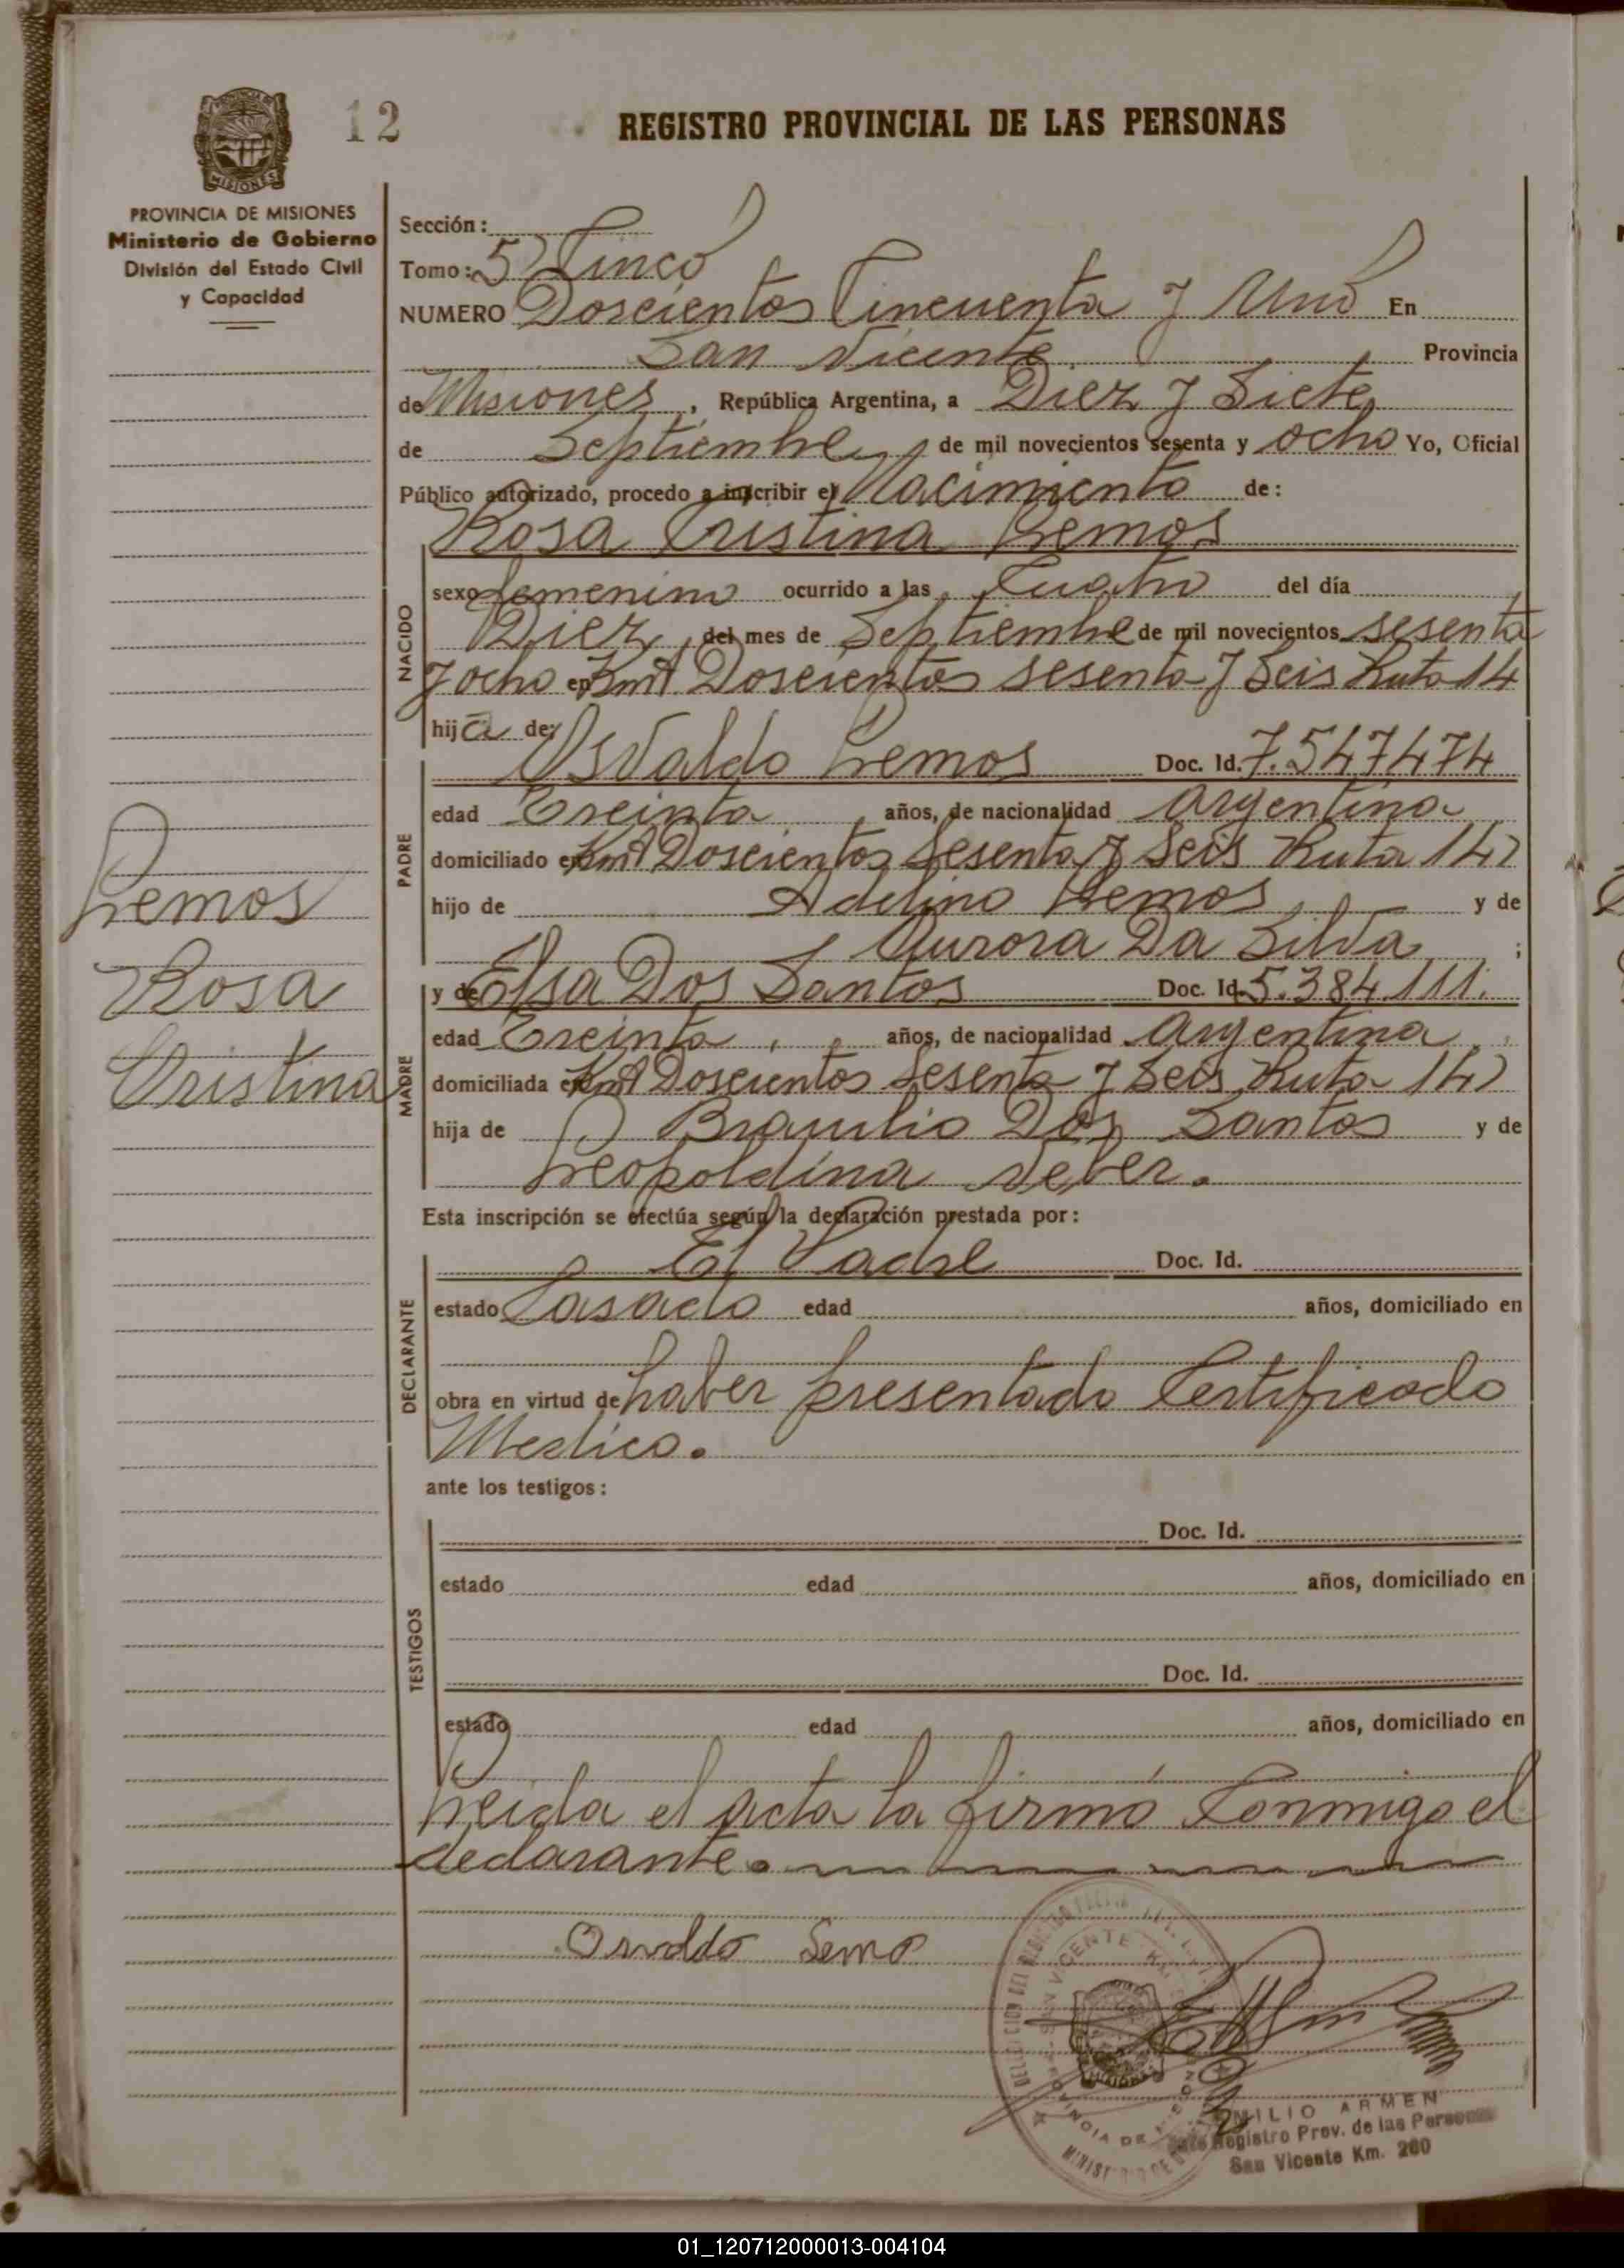 12
REGISTRO PROVINCIAL DE LAS PERSONAS
MISIONES
PROVINCIA DE MISIONES
Ministerio de Gobierno
División del Estado Civil
y Capacidad
Sección:
Tomo: 5) Cinco
NUMERO Doscientos Cincuenta y Uno En
San Vicente Provincia
de Misiones, República Argentina, a Diez y Siete
de Septiembre de mil novecientos sesenta y ocho Yo, Oficial
Público autorizado, procedo a inscribir el Nacimiento de:
Rosa Cristina Lemos
NACIDO
sexo femenino ocurrido a las Cuatro del día
Diez, del mes de Septiembre de mil novecientos sesenta
y ocho en Kmt Doscientos sesenta y Seis Ruta 14
hija de:
Osvaldo Lemos Doc. Id. 7.547474
PADRE
edad Treinta años, de nacionalidad Argentina
domiciliado en Kmt Doscientos Sesenta y Seis Ruta 14)
hijo de Adelino Lemos y de
Aurora Da Silva ;
Lemos
Rosa
Cristina
MADRE
y de Elsa Dos Santos Doc. Id. 5.384.111.
edad Treinta años, de nacionalidad Argentina
domiciliada en Kmt Doscientos Sesenta y Seis Ruta 14)
hija de Braulio Dos Santos y de
Leopoldina Veber.
Esta inscripción se efectúa según la declaración prestada por:
DECLARANTE
El Padre Doc. Id.
estado Casado edad años, domiciliado en
obra en virtud de haber presentado Certificado
Medico.
ante los testigos:
TESTIGOS
Doc. Id.
estado edad años, domiciliado en
Doc. Id.
estado edad años, domiciliado en
Leida el acta la firmó Conmigo el
declarante.
Osvaldo Lemo
SAN VICENTE
PROVINCIA DE
EMILIO ARMEN
Registro Prov. de las Personas
San Vicente Km. 260
01_120712000013-004104